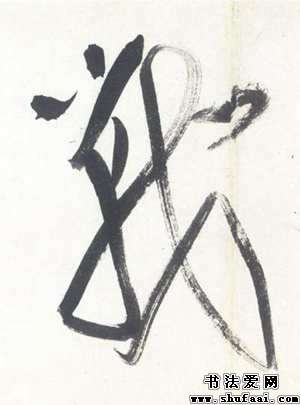 战
书法爱网
www.shufaai.com